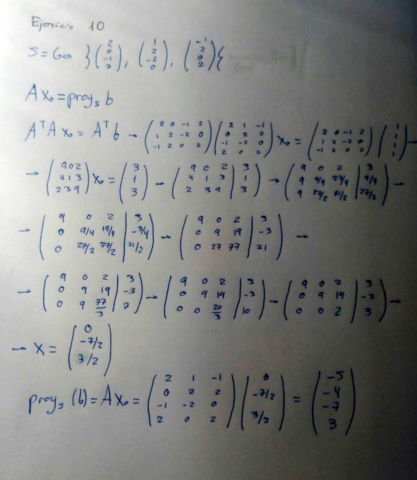 Ejercicio 10
S = Gen { (2 0 -1 2), (1 2 -2 0), (-1 2 0 2) {
A x₀ = proy_S b
AᵀA x₀ = Aᵀ b → (2 0 -1 2 / 1 2 -2 0 / -1 2 0 2) (2 1 -1 / 0 2 2 / -1 -2 0 / 2 0 2) x₀ = (2 0 -1 2 / 1 2 -2 0 / -1 2 0 2) (1 1 1 1) →
→ (9 0 2 / 4 1 3 / 2 3 9) x₀ = (3 1 3) → (9 0 2 | 3 / 4 1 3 | 1 / 2 3 9 | 3) → (9 0 2 | 3 / 0 9/4 19/4 | / 0 27/2 77/2 | 27/2) →
→ (9 0 2 | 3 / 0 9/4 19/4 | -3/4 / 0 27/2 77/2 | 21/2) → (9 0 2 | 3 / 0 9 19 | -3 / 0 27 77 | 21) →
→ (9 0 2 | 3 / 0 9 19 | -3 / 0 9 77/3 | 7) → (9 0 2 | 3 / 0 9 19 | -3 / 0 0 20/3 | 10) → (9 0 2 | 3 / 0 9 19 | -3 / 0 0 2 | 3) →
→ x = (0 -7/2 3/2)
proy_S (b) = A x₀ = (2 1 -1 / 0 2 2 / -1 -2 0 / 2 0 2) (0 -7/2 3/2) = (-5 -4 -7 3)